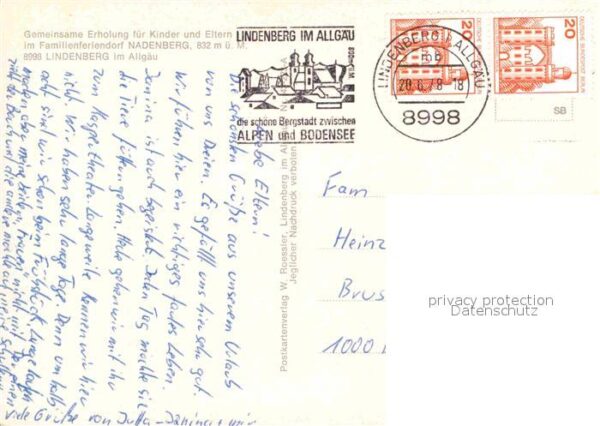 Gemeinsame Erholung für Kinder und Eltern
im Familienferiendorf NADENBERG, 832 m ü. M.
8998 LINDENBERG im Allgäu
LINDENBERG IM ALLGÄU
800m ü.M.
die schöne Bergstadt zwischen
ALPEN und BODENSEE
LINDENBERG I ALLGÄU
20.6.78-18
8998
20
DEUTSCHE BUNDESPOST BERLIN
20
DEUTSCHE BUNDESPOST BERLIN
SB
Liebe Eltern!
Die schönsten Grüße aus unserem Urlaub
von uns Dreien. Es gefällt uns hier sehr gut.
Wir führen hier ein richtiges faules Leben.
Janina ist auch begeistert. Jeden Tag möchte sie
die Tiere füttern gehen. Heute gehen wir mit ihr
zum Kasperltheater. Langeweile kennen wir hier
nicht. Wir haben sehr lange Tage. Denn um halb
acht sind wir schon beim Frühstück. Lange laufen
können aber meine beiden Frauen nicht. Der einen
die andere möchte auf meine Schultern.
Viele Grüße von Jutta - Janina + mir
Postkartenverlag W. Roessler, Lindenberg im Al
Jeglicher Nachdruck verboten
Fam
Heinz
Brus
1000
privacy protection
Datenschutz